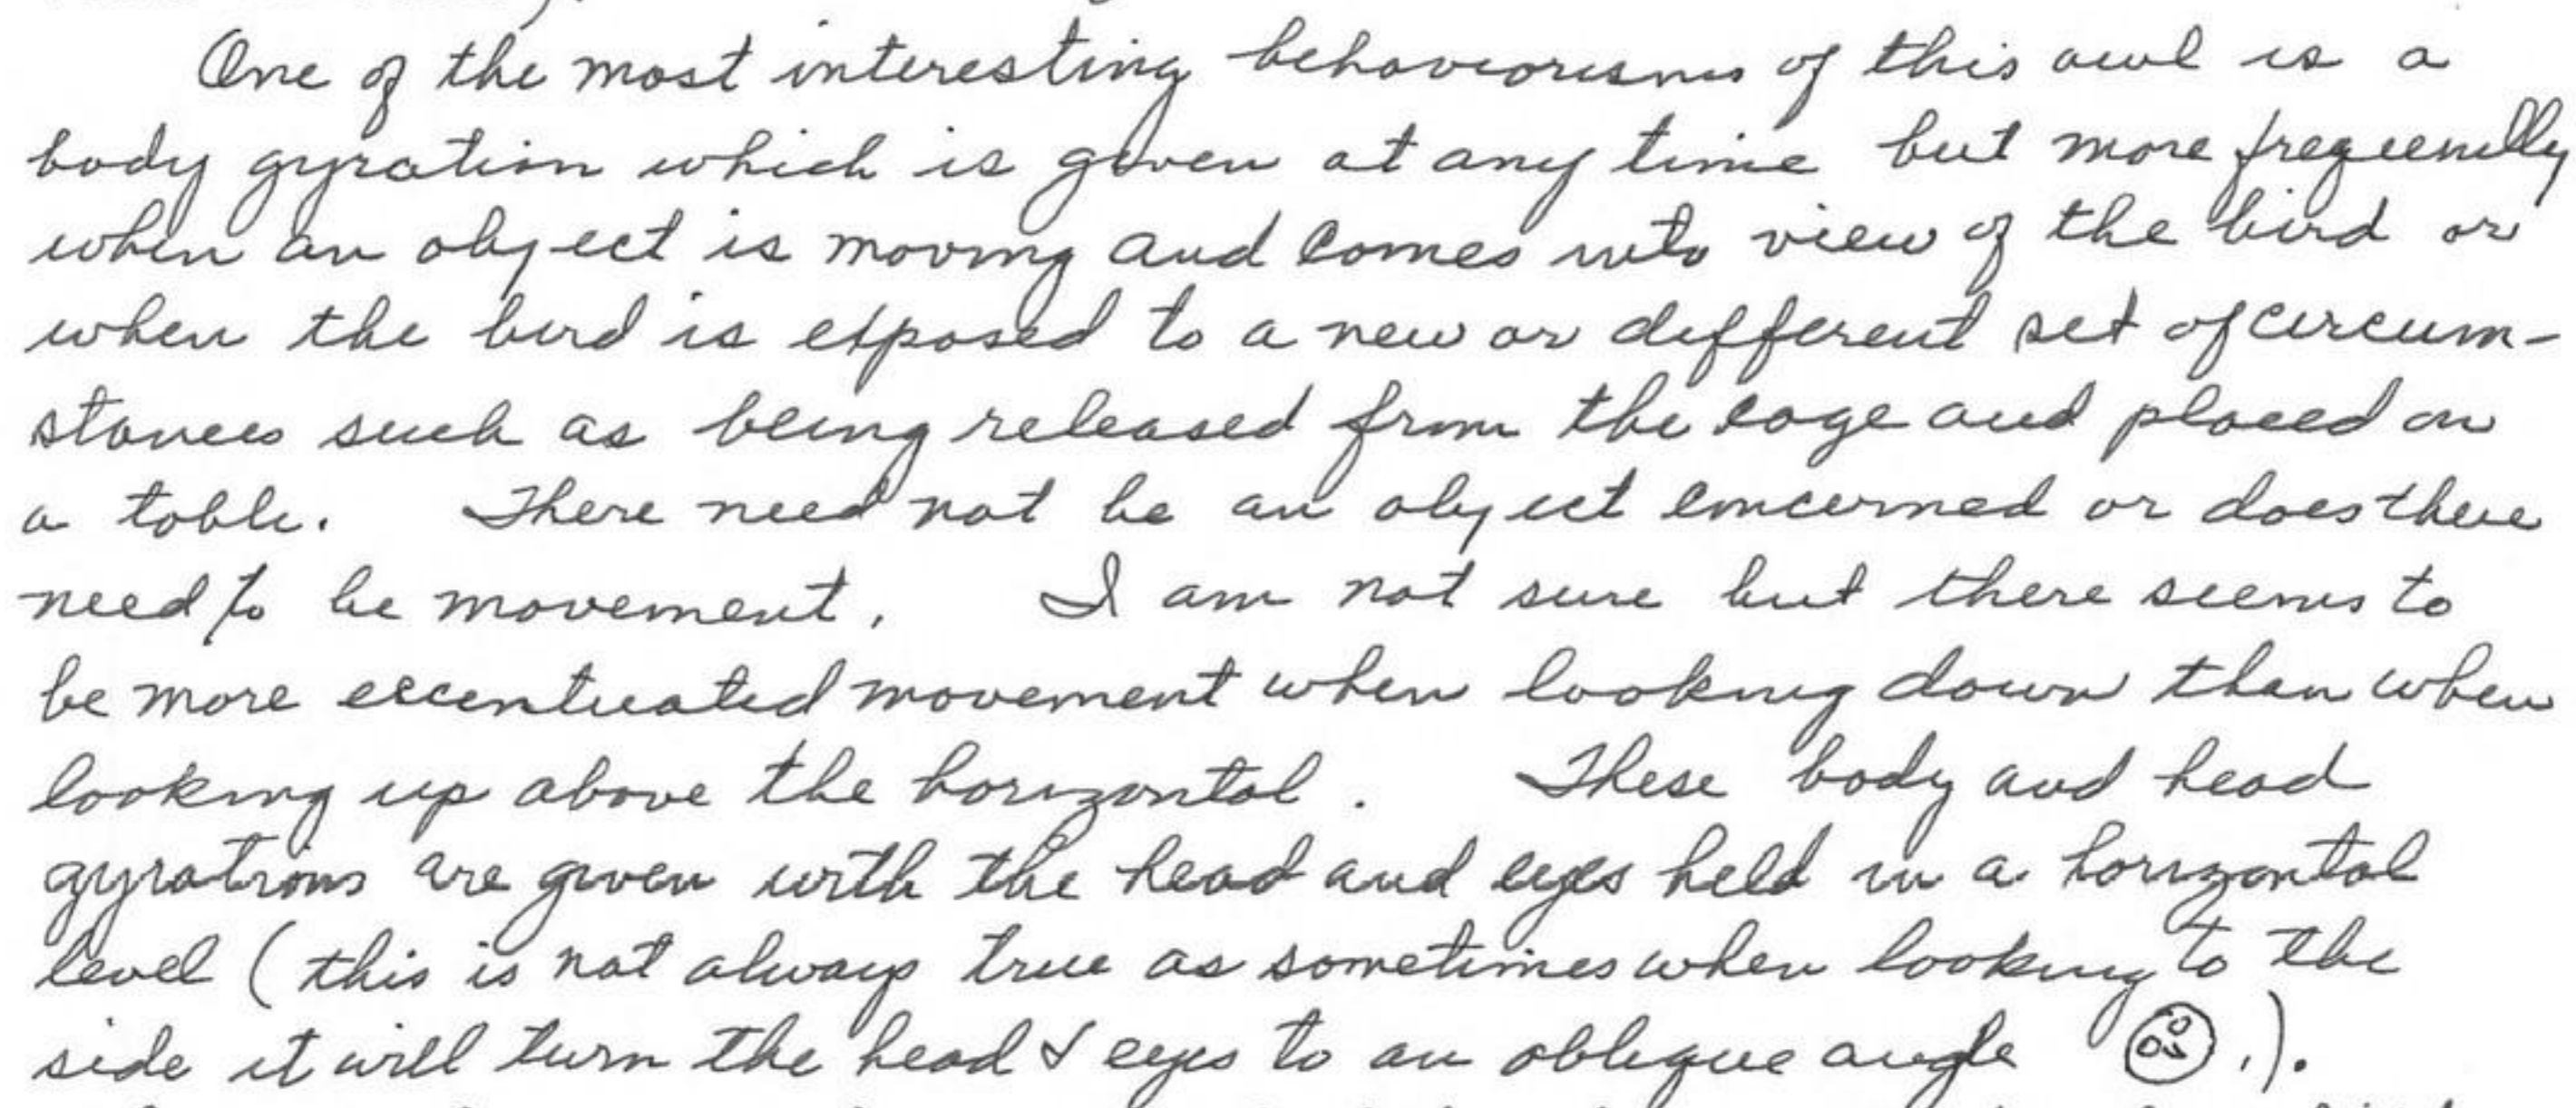 One of the most interesting behaviorisms of this owl is a
body gyration which is given at any time but more frequently
when an object is moving and comes into view of the bird or
when the bird is exposed to a new or different set of circum-
stances such as being released from the cage and placed on
a table. There need not be an object concerned or does there
need to be movement. I am not sure but there seems to
be more eccentuated movement when looking down than when
looking up above the horizontal. These body and head
gyrations are given with the head and eyes held in a horizontal
level (this is not always true as sometimes when looking to the
side it will turn the head & eyes to an oblique angle .).